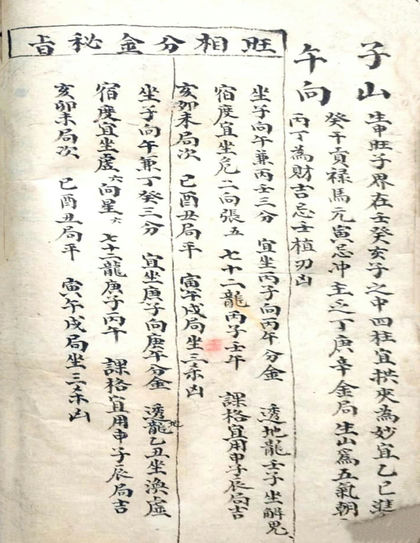 子山
生申旺子界在壬癸亥子之中四柱宜拱夾為妙宜乙巳
癸干貢祿馬元寅忌沖主之丁庚辛金局生山為五氣朝
午向
丙丁為財吉忌壬植刃凶
旺相分金秘旨
坐子向午兼丙壬三分 宜坐丙子向丙午分金 透地龍壬子坐解鬼
宿度宜坐危二向張五 七十二龍丙子壬午 課格宜用申子辰局吉
亥卯未局次 巳酉丑局平 寅午戌局坐三杀凶
坐子向午兼丁癸三分 宜坐庚子向庚午分金 透地龍乙丑坐渙虛
宿度宜坐虛六向星六 七十二龍庚子丙午 課格宜用申子辰局吉
亥卯未局次 巳酉丑局平 寅午戌局坐三杀凶